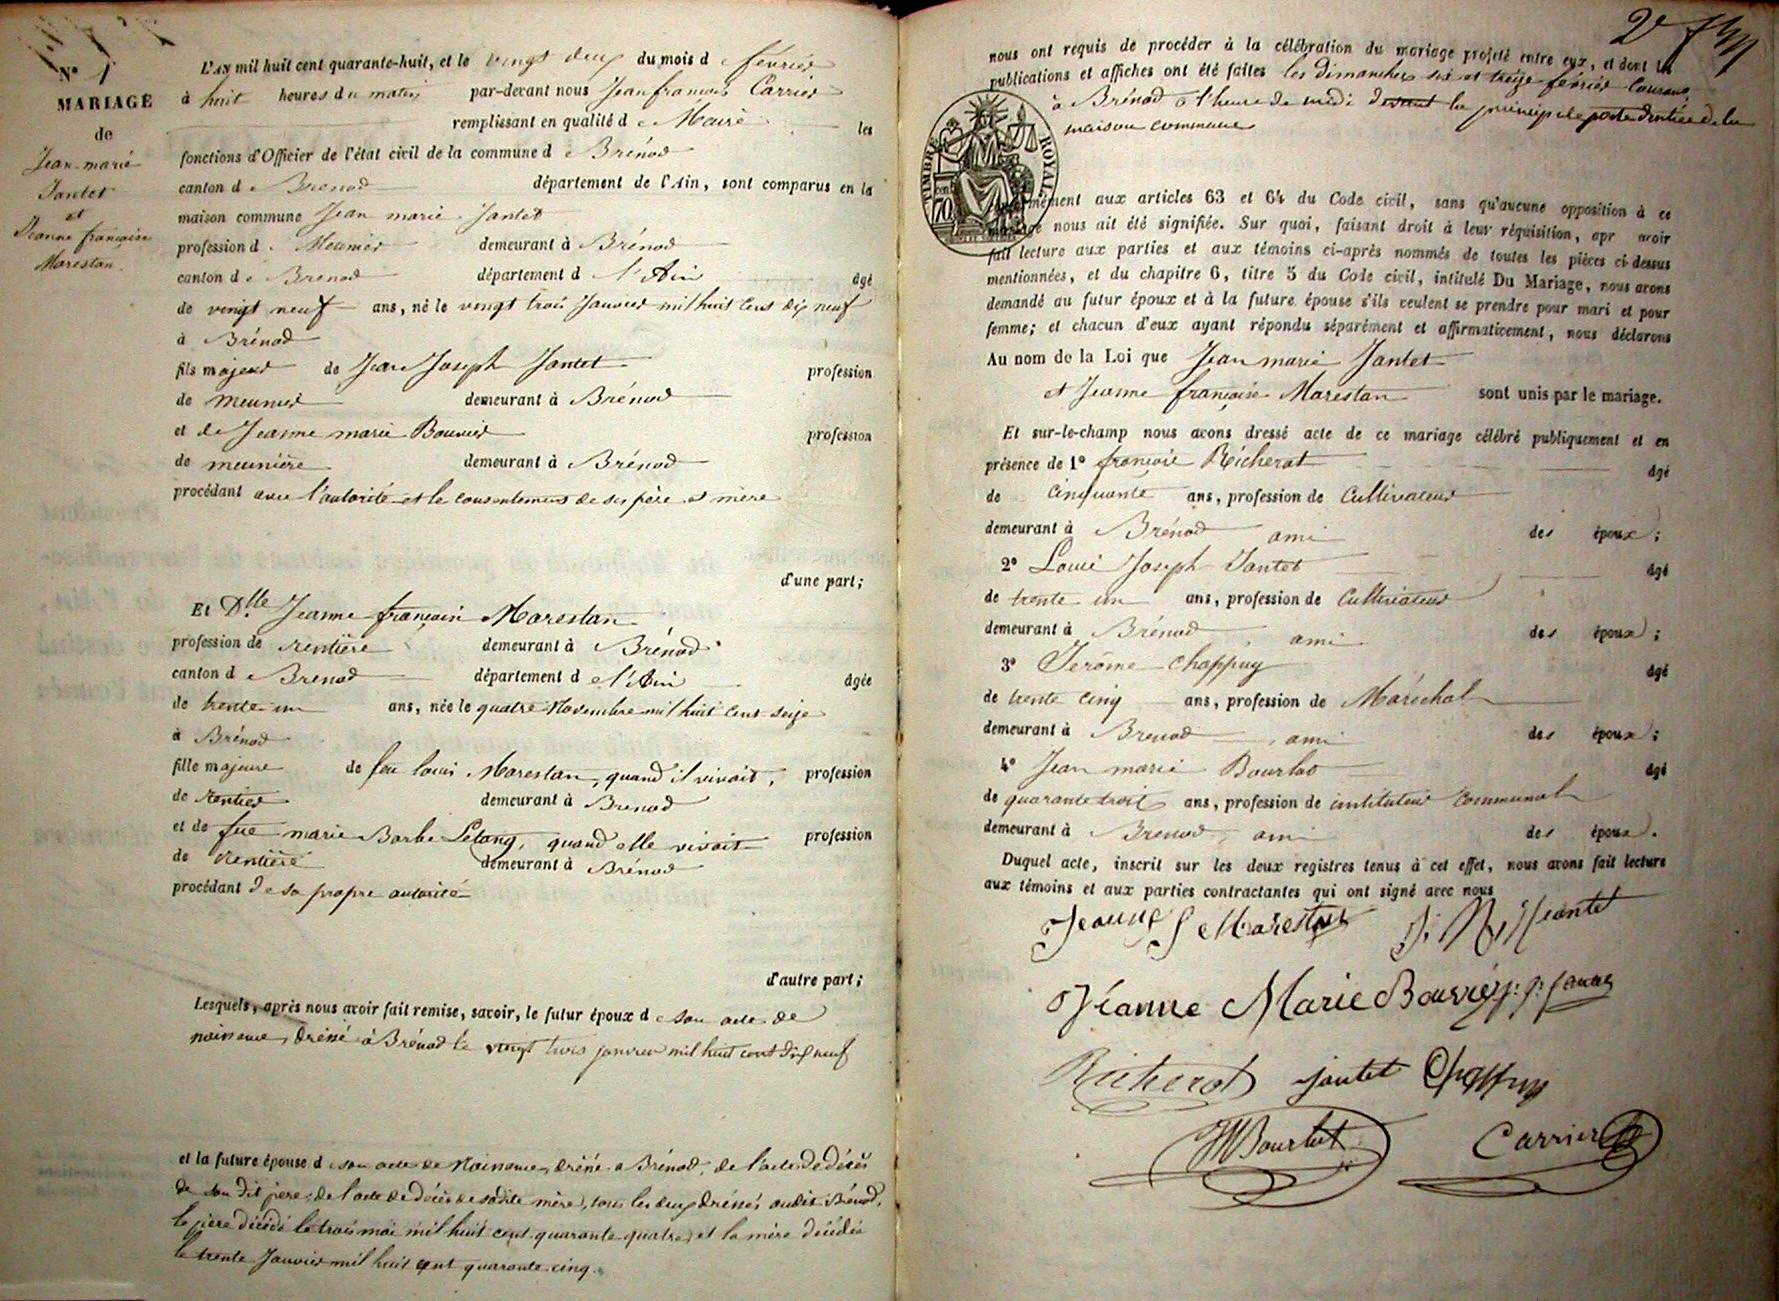 N° 1
MARIAGE
de
Jean marie
Jantet
et
Jeanne françoise
Marestan.
L'AN mil huit cent quarante-huit, et le vingt deux du mois d e février
à huit heures du matin par-devant nous Jean françois Carrier
remplissant en qualité d e Maire les
fonctions d'Officier de l'état civil de la commune d e Brénod
canton d e Brenod département de l'Ain, sont comparus en la
maison commune Jean marie Jantet
profession d e Meunier demeurant à Brénod
canton d e Brenod département d e l'Ain âgé
de vingt neuf ans, né le vingt trois Janvier mil huit cent dix neuf
à Brénod
fils majeur de Jean Joseph Jantet profession
de meunier demeurant à Brénod
et de Jeanne marie Bouvier profession
de meunière demeurant à Brénod
procédant avec l'autorité et le consentement de ses père et mère
d'une part;
Et Dlle Jeanne françoise Marestan
profession de rentière demeurant à Brénod
canton d e Brenod département d e l'Ain âgée
de trente un ans, née le quatre Novembre mil huit cent seize
à Brénod
fille majeure de feu louis Marestan, quand il vivait, profession
de rentier demeurant à Brenod
et de fue marie Barbe Letang, quand elle vivait profession
de rentière demeurant à Brénod
procédant de sa propre autorité
d'autre part;
Lesquels, après nous avoir fait remise, savoir, le futur époux d e son acte de
naissance, dréssé à Brénod le vingt trois janvier mil huit cent dix neuf
et la future épouse d e son acte de Naissance, dréssé a Brénod, de l'acte de décès
de son dit père, de l'acte de décès de sadite mère, tous les deux dréssés audit Brénod,
le père décédé le trois mai mil huit cent quarante quatre, et la mère décédée
le trente Janvier mil huit cent quarante cinq.
2e
nous ont requis de procéder à la célébration du mariage projeté entre eux, et dont les
publications et affiches ont été faites les dimanches six et treize février Courant
à Brénod a l'heure de midi devant la principale porte d'entrée de la
maison commune
TIMBRE ROYAL
70
mément aux articles 63 et 64 du Code civil, sans qu'aucune opposition à ce
mariage nous ait été signifiée. Sur quoi, faisant droit à leur réquisition, apr avoir
fait lecture aux parties et aux témoins ci-après nommés de toutes les pièces ci-dessus
mentionnées, et du chapitre 6, titre 5 du Code civil, intitulé Du Mariage, nous avons
demandé au futur époux et à la future épouse s'ils veulent se prendre pour mari et pour
femme; et chacun d'eux ayant répondu séparément et affirmativement, nous déclarons
Au nom de la Loi que Jean marie Jantet
et Jeanne françoise Marestan sont unis par le mariage.
Et sur-le-champ nous avons dressé acte de ce mariage célébré publiquement et en
présence de 1° françois Richerot âgé
de cinquante ans, profession de Cultivateur
demeurant à Brénod ami des époux;
2° Louis Joseph Jantet âgé
de trente un ans, profession de Cultivateur
demeurant à Brénod, ami des époux;
3° Jerôme Chappuy âgé
de trente cinq ans, profession de Maréchal
demeurant à Brenod, ami des époux;
4° Jean marie Bourlot âgé
de quarante trois ans, profession de instituteur Communal
demeurant à Brenod, ami des époux.
Duquel acte, inscrit sur les deux registres tenus à cet effet, nous avons fait lecture
aux témoins et aux parties contractantes qui ont signé avec nous
Jeanne f Marestan J. M. Jeantet
Jéanne Marie Bouvier
Richerot jantet Chappuy
JM Bourlot Carrier